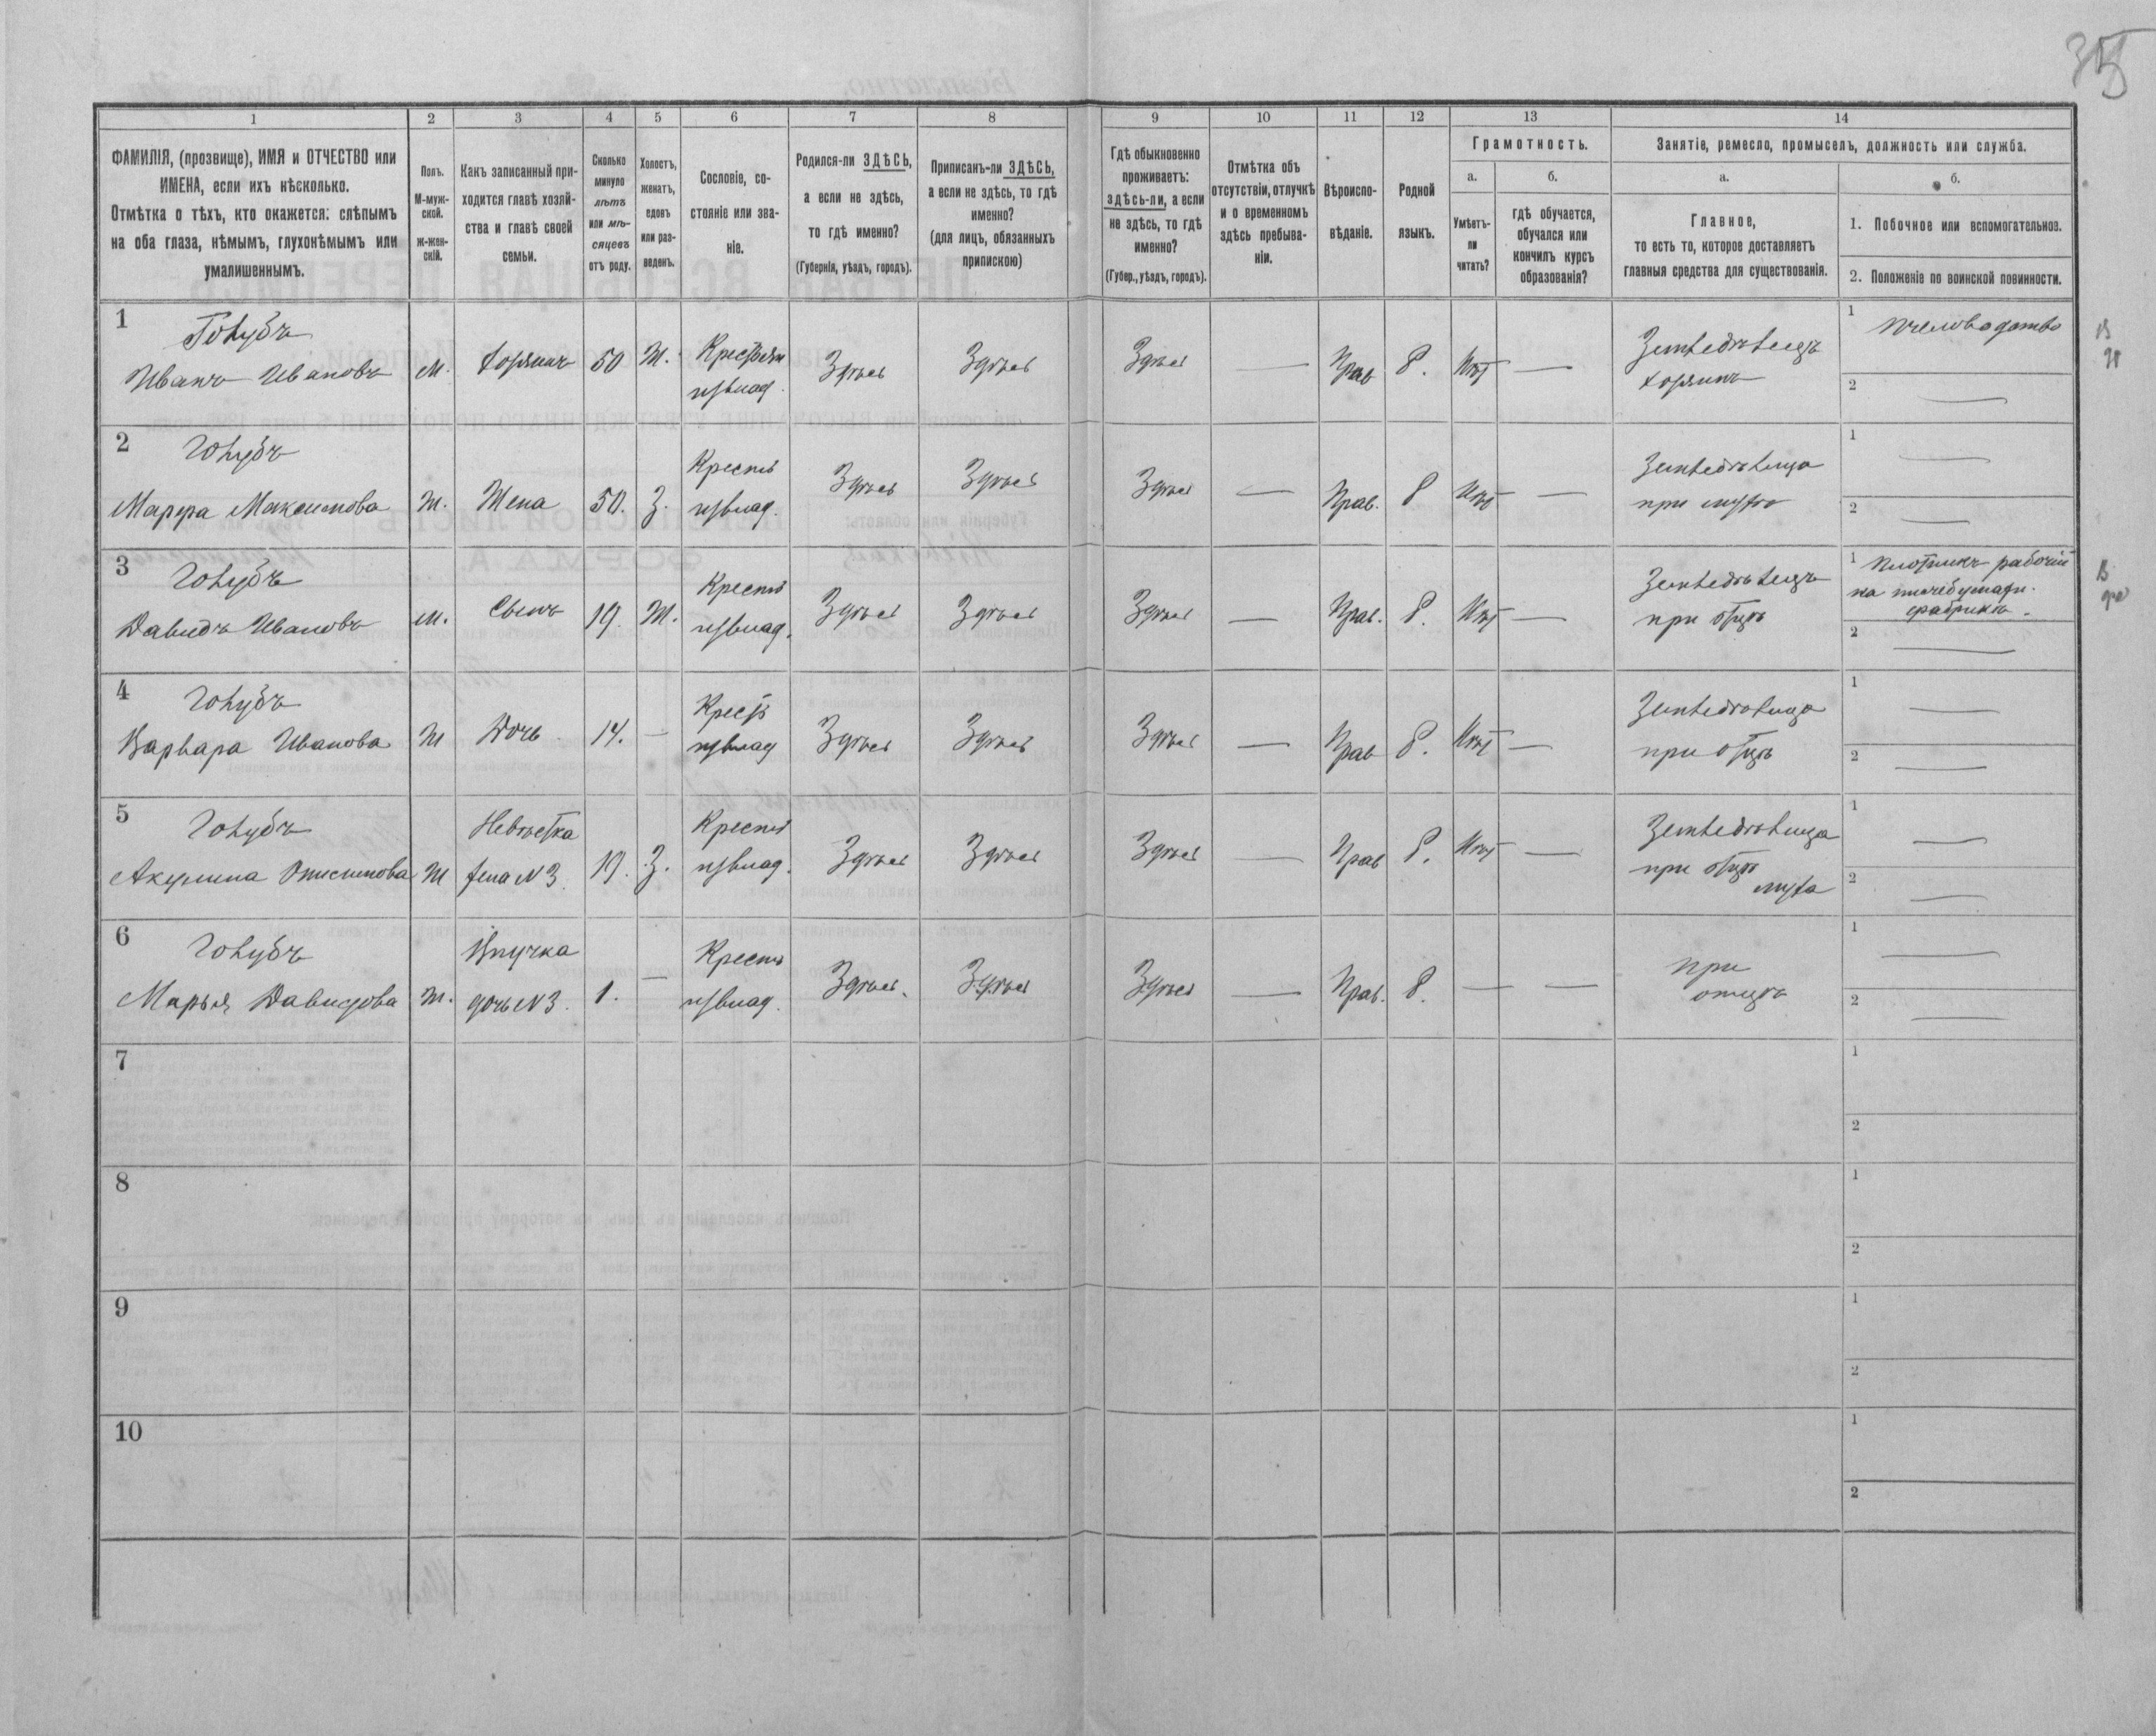 35
1
2
3
4
5
6
7
8
9
10
11
12
13
14
ФАМИЛІЯ, (прозвище), ИМЯ и ОТЧЕСТВО или
ИМЕНА, если ихъ нѣсколько.
Отмѣтка о тѣхъ, кто окажется: слѣпымъ
на оба глаза, нѣмымъ, глухонѣмымъ или
умалишеннымъ.
Полъ.
М-муж-
ской.
Ж-жен-
скій.
Какъ записанный при-
ходится главѣ хозяй-
ства и главѣ своей
семьи.
Сколько
минуло
лѣтъ
или мѣ-
сяцевъ
отъ роду.
Холостъ,
женатъ,
вдовъ
или раз-
веденъ.
Сословіе, со-
стояніе или зва-
ніе.
Родился-ли ЗДѢСЬ,
а если не здѣсь,
то гдѣ именно?
(Губернія, уѣздъ, городъ).
Приписанъ-ли ЗДѢСЬ,
а если не здѣсь, то гдѣ
именно?
(для лицъ, обязанныхъ
припискою)
Гдѣ обыкновенно
проживаетъ:
здѣсь-ли, а если
не здѣсь, то гдѣ
именно?
(Губер., уѣздъ, городъ).
Отмѣтка объ
отсутствіи, отлучкѣ
и о временномъ
здѣсь пребыва-
ніи.
Вѣроиспо-
вѣданіе.
Родной
языкъ.
Грамотность.
а.
Умѣетъ-
ли
читать?
б.
гдѣ обучается,
обучался или
кончилъ курсъ
образованія?
Занятіе, ремесло, промыселъ, должность или служба.
а.
Главное,
то есть то, которое доставляетъ
главныя средства для существованія.
б.
1. Побочное или вспомогательное.
2. Положеніе по воинской повинности.
1
Голубъ
Иванъ Ивановъ
М.
хозяинъ
50
Ж.
Крестьян
изъ влад.
Здѣсь
Здѣсь
Здѣсь
—
Прав
Р.
Нѣт
—
Земледѣлецъ
хозяинъ
1
пчеловодство
2
—
2
Голубъ
Марфа Максимова
Ж.
Жена
50.
З.
Крестъ
изъ влад.
Здѣсь
Здѣсь
Здѣсь
—
Прав.
Р
Нѣт
—
Земледѣлица
при мужѣ
1
—
2
—
3
Голубъ
Давидъ Ивановъ
М.
Сынъ
19.
Ж.
Крестъ
изъ влад.
Здѣсь
Здѣсь
Здѣсь
—
Прав.
Р.
Нѣт
—
Земледѣлецъ
при отцѣ
1
плотникъ рабочій
на писчебумажн.
фабрикѣ.
2
—
4
Голубъ
Варвара Иванова
Ж
Дочь
14.
—
Крест
изъ влад
Здѣсь
Здѣсь
Здѣсь
—
Прав
Р.
Нѣт
—
Земледѣлица
при отцѣ
1
—
2
—
5
Голубъ
Акулина Онисимова
Ж
Невѣстка
жена №3.
19.
З.
Крестъ
изъ влад.
Здѣсь
Здѣсь
Здѣсь
—
Прав
Р.
Нѣт
—
Земледѣлица
при отцѣ
мужа
1
—
2
—
6
Голубъ
Марья Давидова
Ж.
Внучка
дочь №3.
1.
—
Крестъ
изъ влад.
Здѣсь.
Здѣсь
Здѣсь
—
Прав.
Р.
—
—
при
отцѣ
1
—
2
—
7
1
2
8
1
2
9
1
2
10
1
2